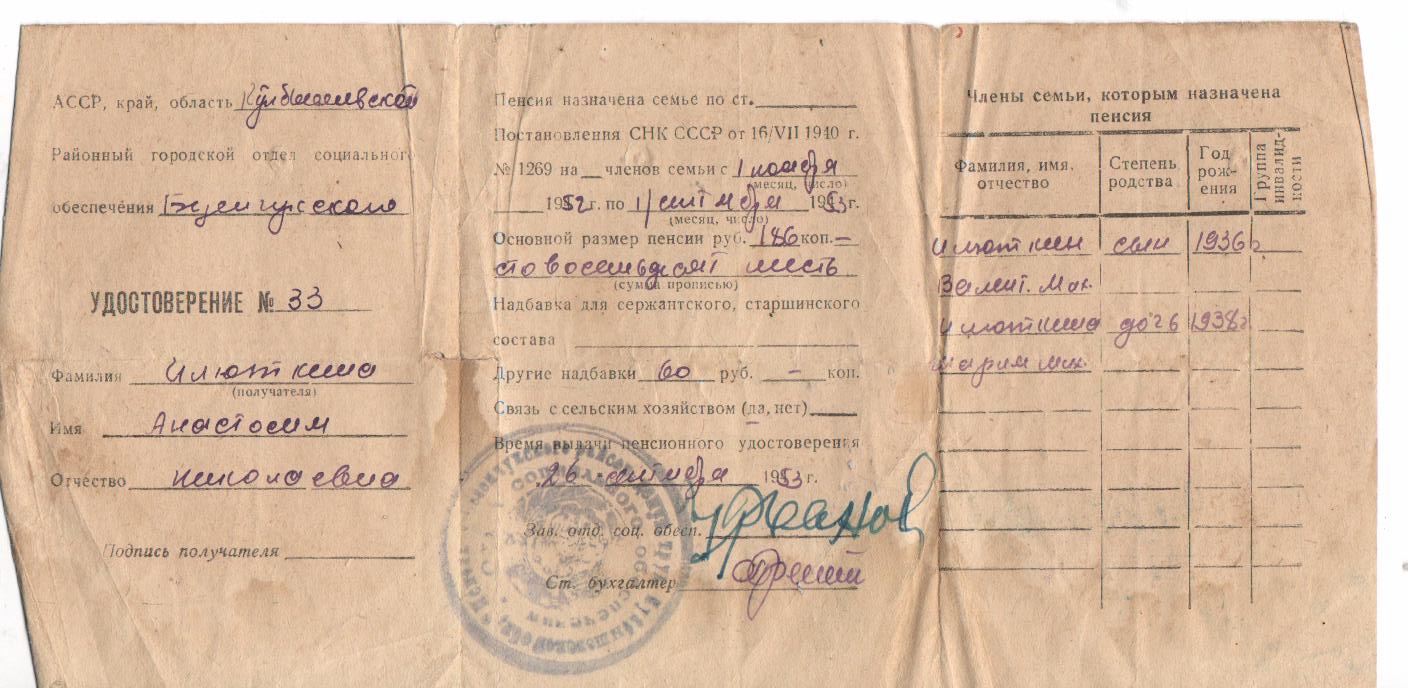 АССР, край, область Куйбышевской
Районный городской отдел социального
обеспечения Безенчукского
УДОСТОВЕРЕНИЕ № 33
Фамилия Илюткина
(получателя)
Имя Анастасия
Отчество Николаевна
Подпись получателя
Пенсия назначена семье по ст.
Постановления СНК СССР от 16/VII 1940 г.
№ 1269 на членов семьи с 1 ноября
(месяц, число)
1952 г. по 1/сентября 1953 г.
(месяц, число)
Основной размер пенсии руб. 186 коп. —
сто восемьдесят шесть
(сумма прописью)
Надбавка для сержантского, старшинского
состава
Другие надбавки 60 руб. — коп.
Связь с сельским хозяйством (да, нет)
Время выдачи пенсионного удостоверения
26 сентября 1953 г.
Зав. отд. соц. обесп.
Ст. бухгалтер
Члены семьи, которым назначена
пенсия
Фамилия, имя, отчество
Степень родства
Год рождения
Группа инвалидности
Илюткин сын 1936 г
Валент. Мих.
Илюткина дочь 1938 г.
Мария Мих.